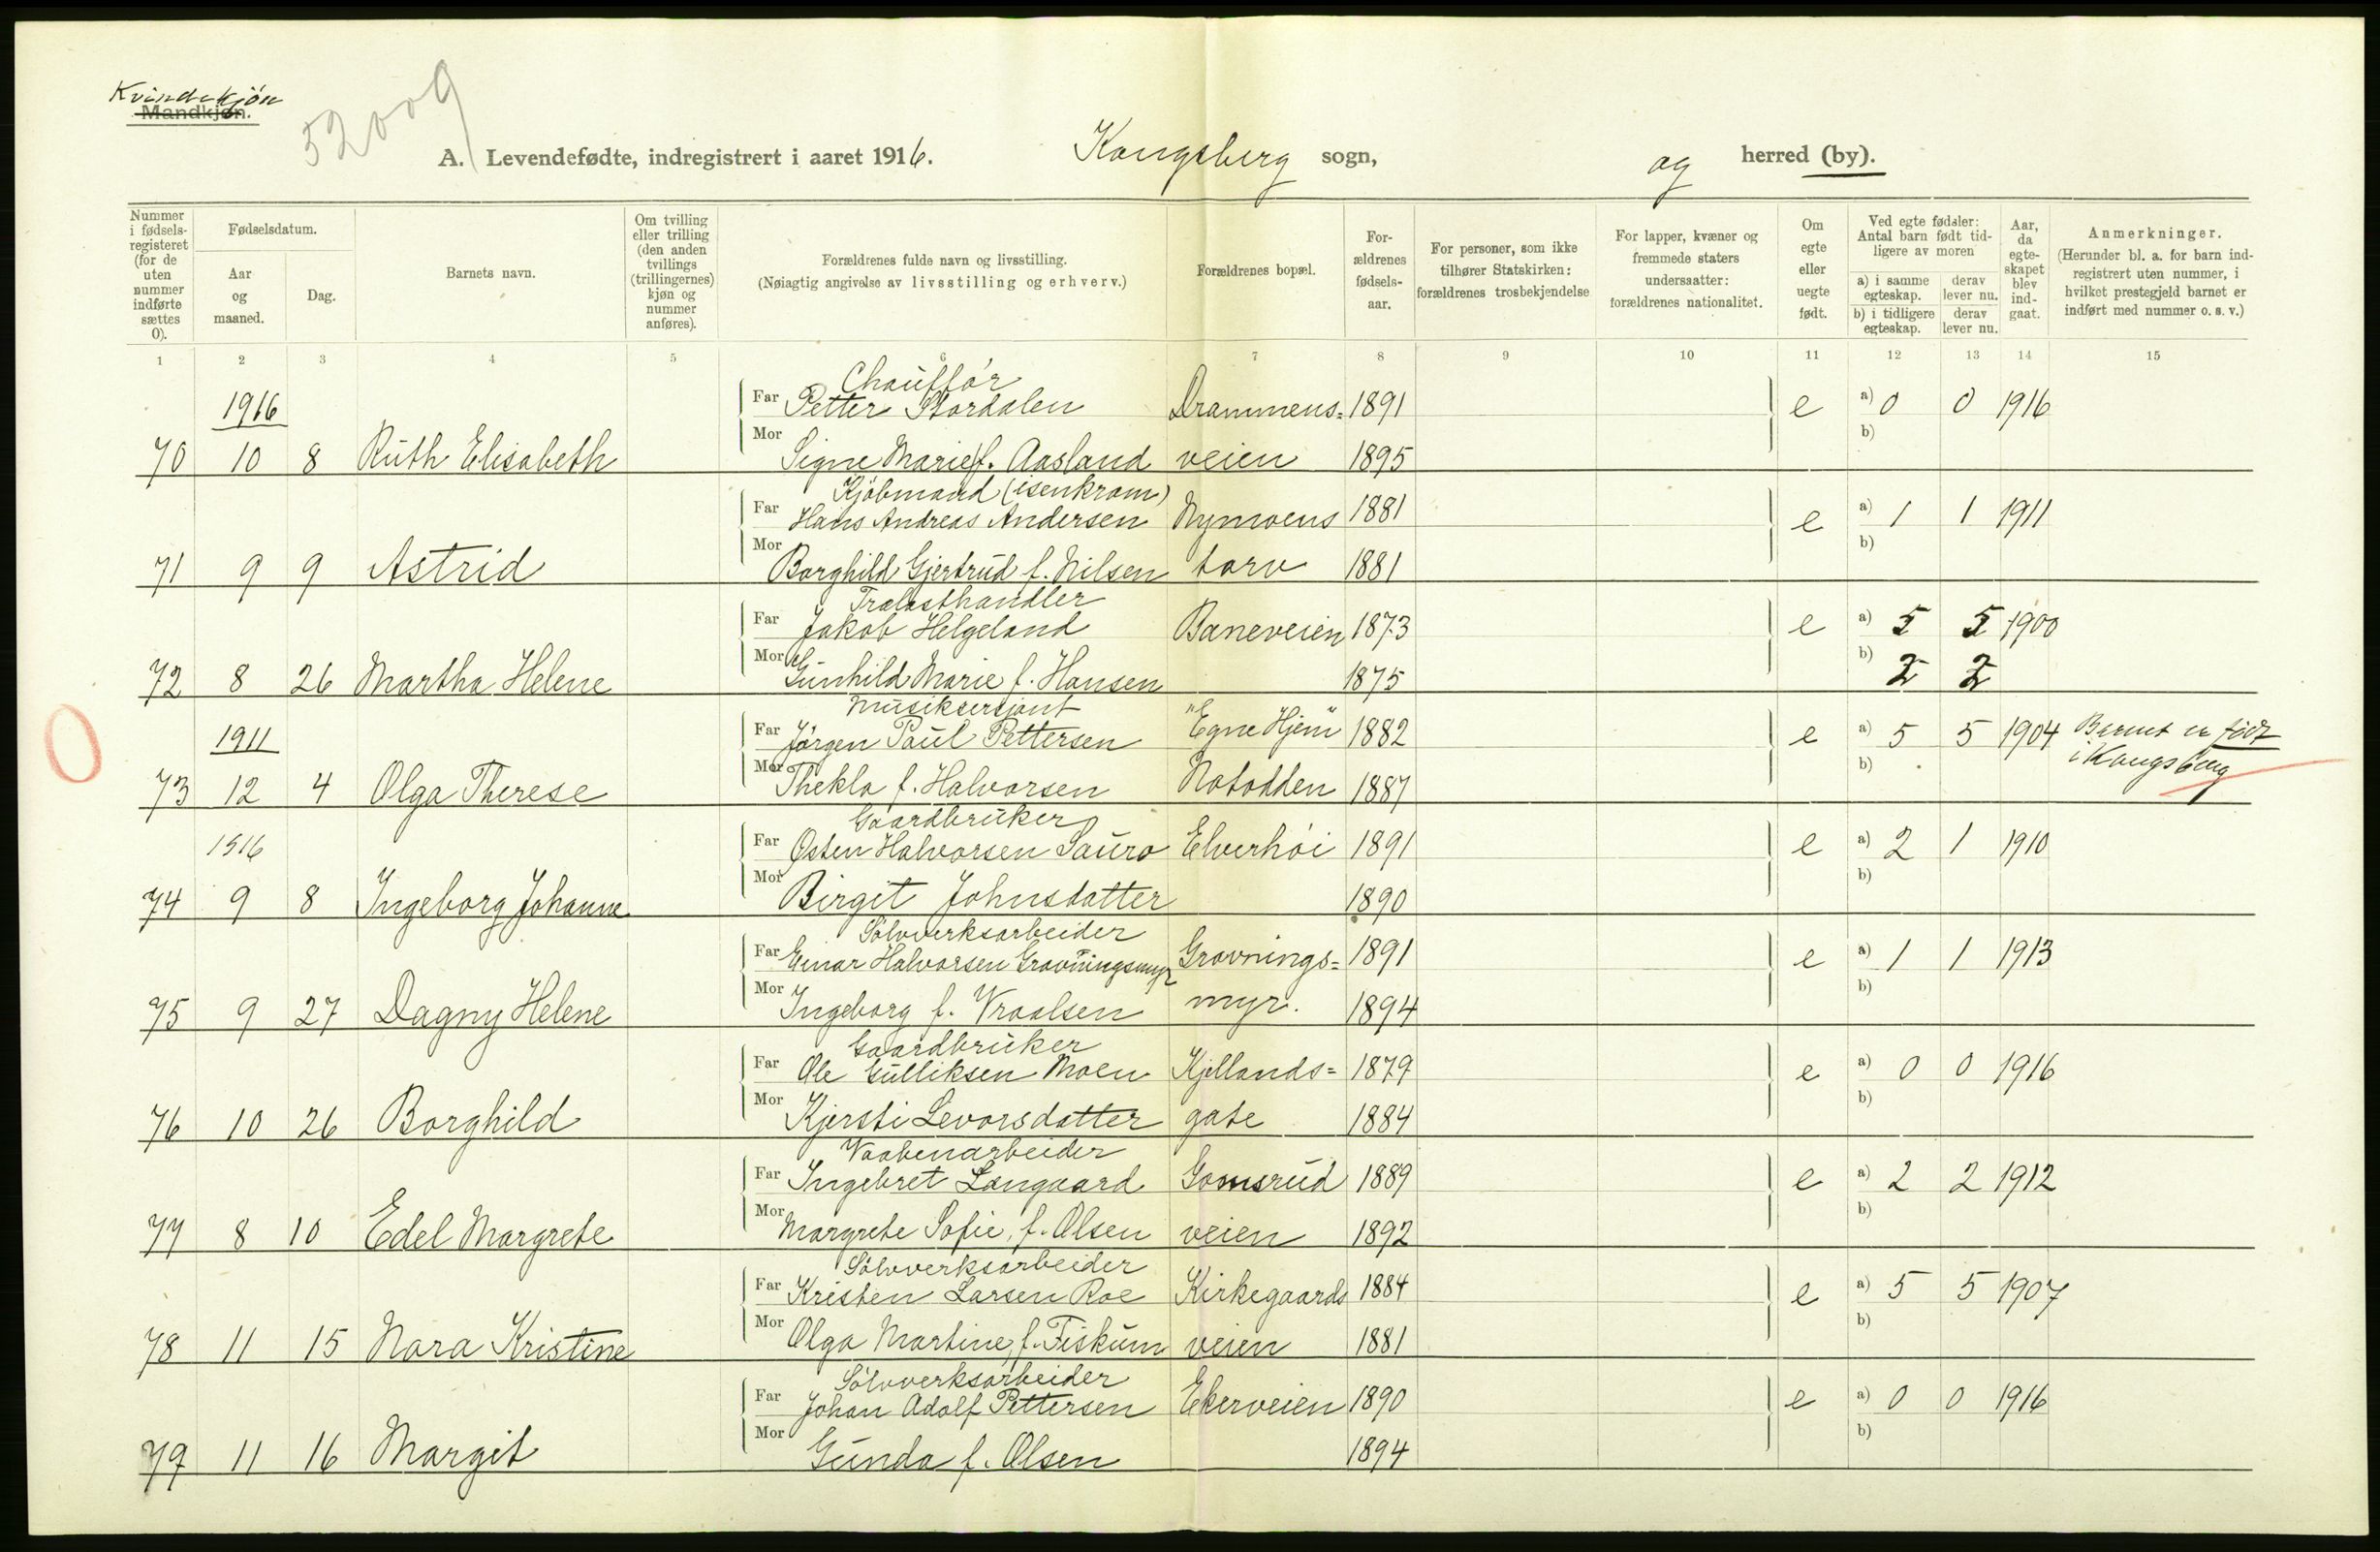 Kvindekjön
Mandkjøn.
52009
A. Levendefødte, indregistrert i aaret 1916. Kongsberg sogn, og herred (by).
Nummer i fødselsregisteret (for de uten nummer indførte sættes 0).
Fødselsdatum.
Aar og maaned.
Dag.
Barnets navn.
Om tvilling eller trilling (den anden tvillings (trillingernes) kjøn og nummer anføres).
Forældrenes fulde navn og livsstilling.
(Nøiagtig angivelse av livsstilling og erhverv.)
Forældrenes bopæl.
Forældrenes fødselsaar.
For personer, som ikke tilhører Statskirken: forældrenes trosbekjendelse
For lapper, kvæner og fremmede staters undersaatter: forældrenes nationalitet.
Om egte eller uegte født.
Ved egte fødsler: Antal barn født tidligere av moren
a) i samme egteskap. derav lever nu.
b) i tidligere egteskap. derav lever nu.
Aar, da egteskapet blev indgaat.
Anmerkninger.
(Herunder bl. a. for barn indregistrert uten nummer, i hvilket prestegjeld barnet er indført med nummer o. s. v.)
1 2 3 4 5 6 7 8 9 10 11 12 13 14 15
Chauffør
1916 Far Petter Stordalen Drammens= 1891 e a) 0 0 1916
70 10 8 Ruth Elisabeth Mor Signe Marie f. Aasland veien 1895 b)
Kjøbmand (isenkram)
Far Hans Andreas Andersen Nymoens 1881 e a) 1 1 1911
71 9 9 Astrid Mor Borghild Gjertrud f. Nilsen torv 1881 b)
Trælasthandler
Far Jakob Helgeland Baneveien 1873 e a) 5 5 1900
72 8 26 Martha Helene Mor Gunhild Marie f. Hansen 1875 b) 2 2
Musiksersjant
1911 Far Jörgen Paul Pettersen "Egne Hjem" 1882 e a) 5 5 1904 Barnet er född
73 12 4 Olga Therese Mor Thekla f. Halvorsen Notodden 1887 b) i Kongsberg
0
Gaardbruker
1916 Far Østen Halvorsen Sauro Elverhöi 1891 e a) 2 1 1910
74 9 8 Ingeborg Johanne Mor Birgit Johnsdatter 1890 b)
Sölvverksarbeider
Far Einar Halvorsen Grovningsmyr Grovnings= 1891 e a) 1 1 1913
75 9 27 Dagny Helene Mor Ingeborg f. Vraalsen myr. 1894 b)
Gaardbruker
Far Ole Gulliksen Moen Kjellands= 1879 e a) 0 0 1916
76 10 26 Borghild Mor Kjersti Levorsdatter gate 1884 b)
Vaabenarbeider
Far Ingebret Langaard Gomsrud 1889 e a) 2 2 1912
77 8 10 Edel Margrete Mor Margrete Sofie, f. Olsen veien 1892 b)
Sölvverksarbeider
Far Kristen Larsen Roe Kirkegaards 1884 e a) 5 5 1907
78 11 15 Nora Kristine Mor Olga Martine, f. Fiskum veien 1881 b)
Sölvverksarbeider
Far Johan Adolf Pettersen Ekerveien 1890 e a) 0 0 1916
79 11 16 Margit Mor Gunda f. Olsen 1894 b)